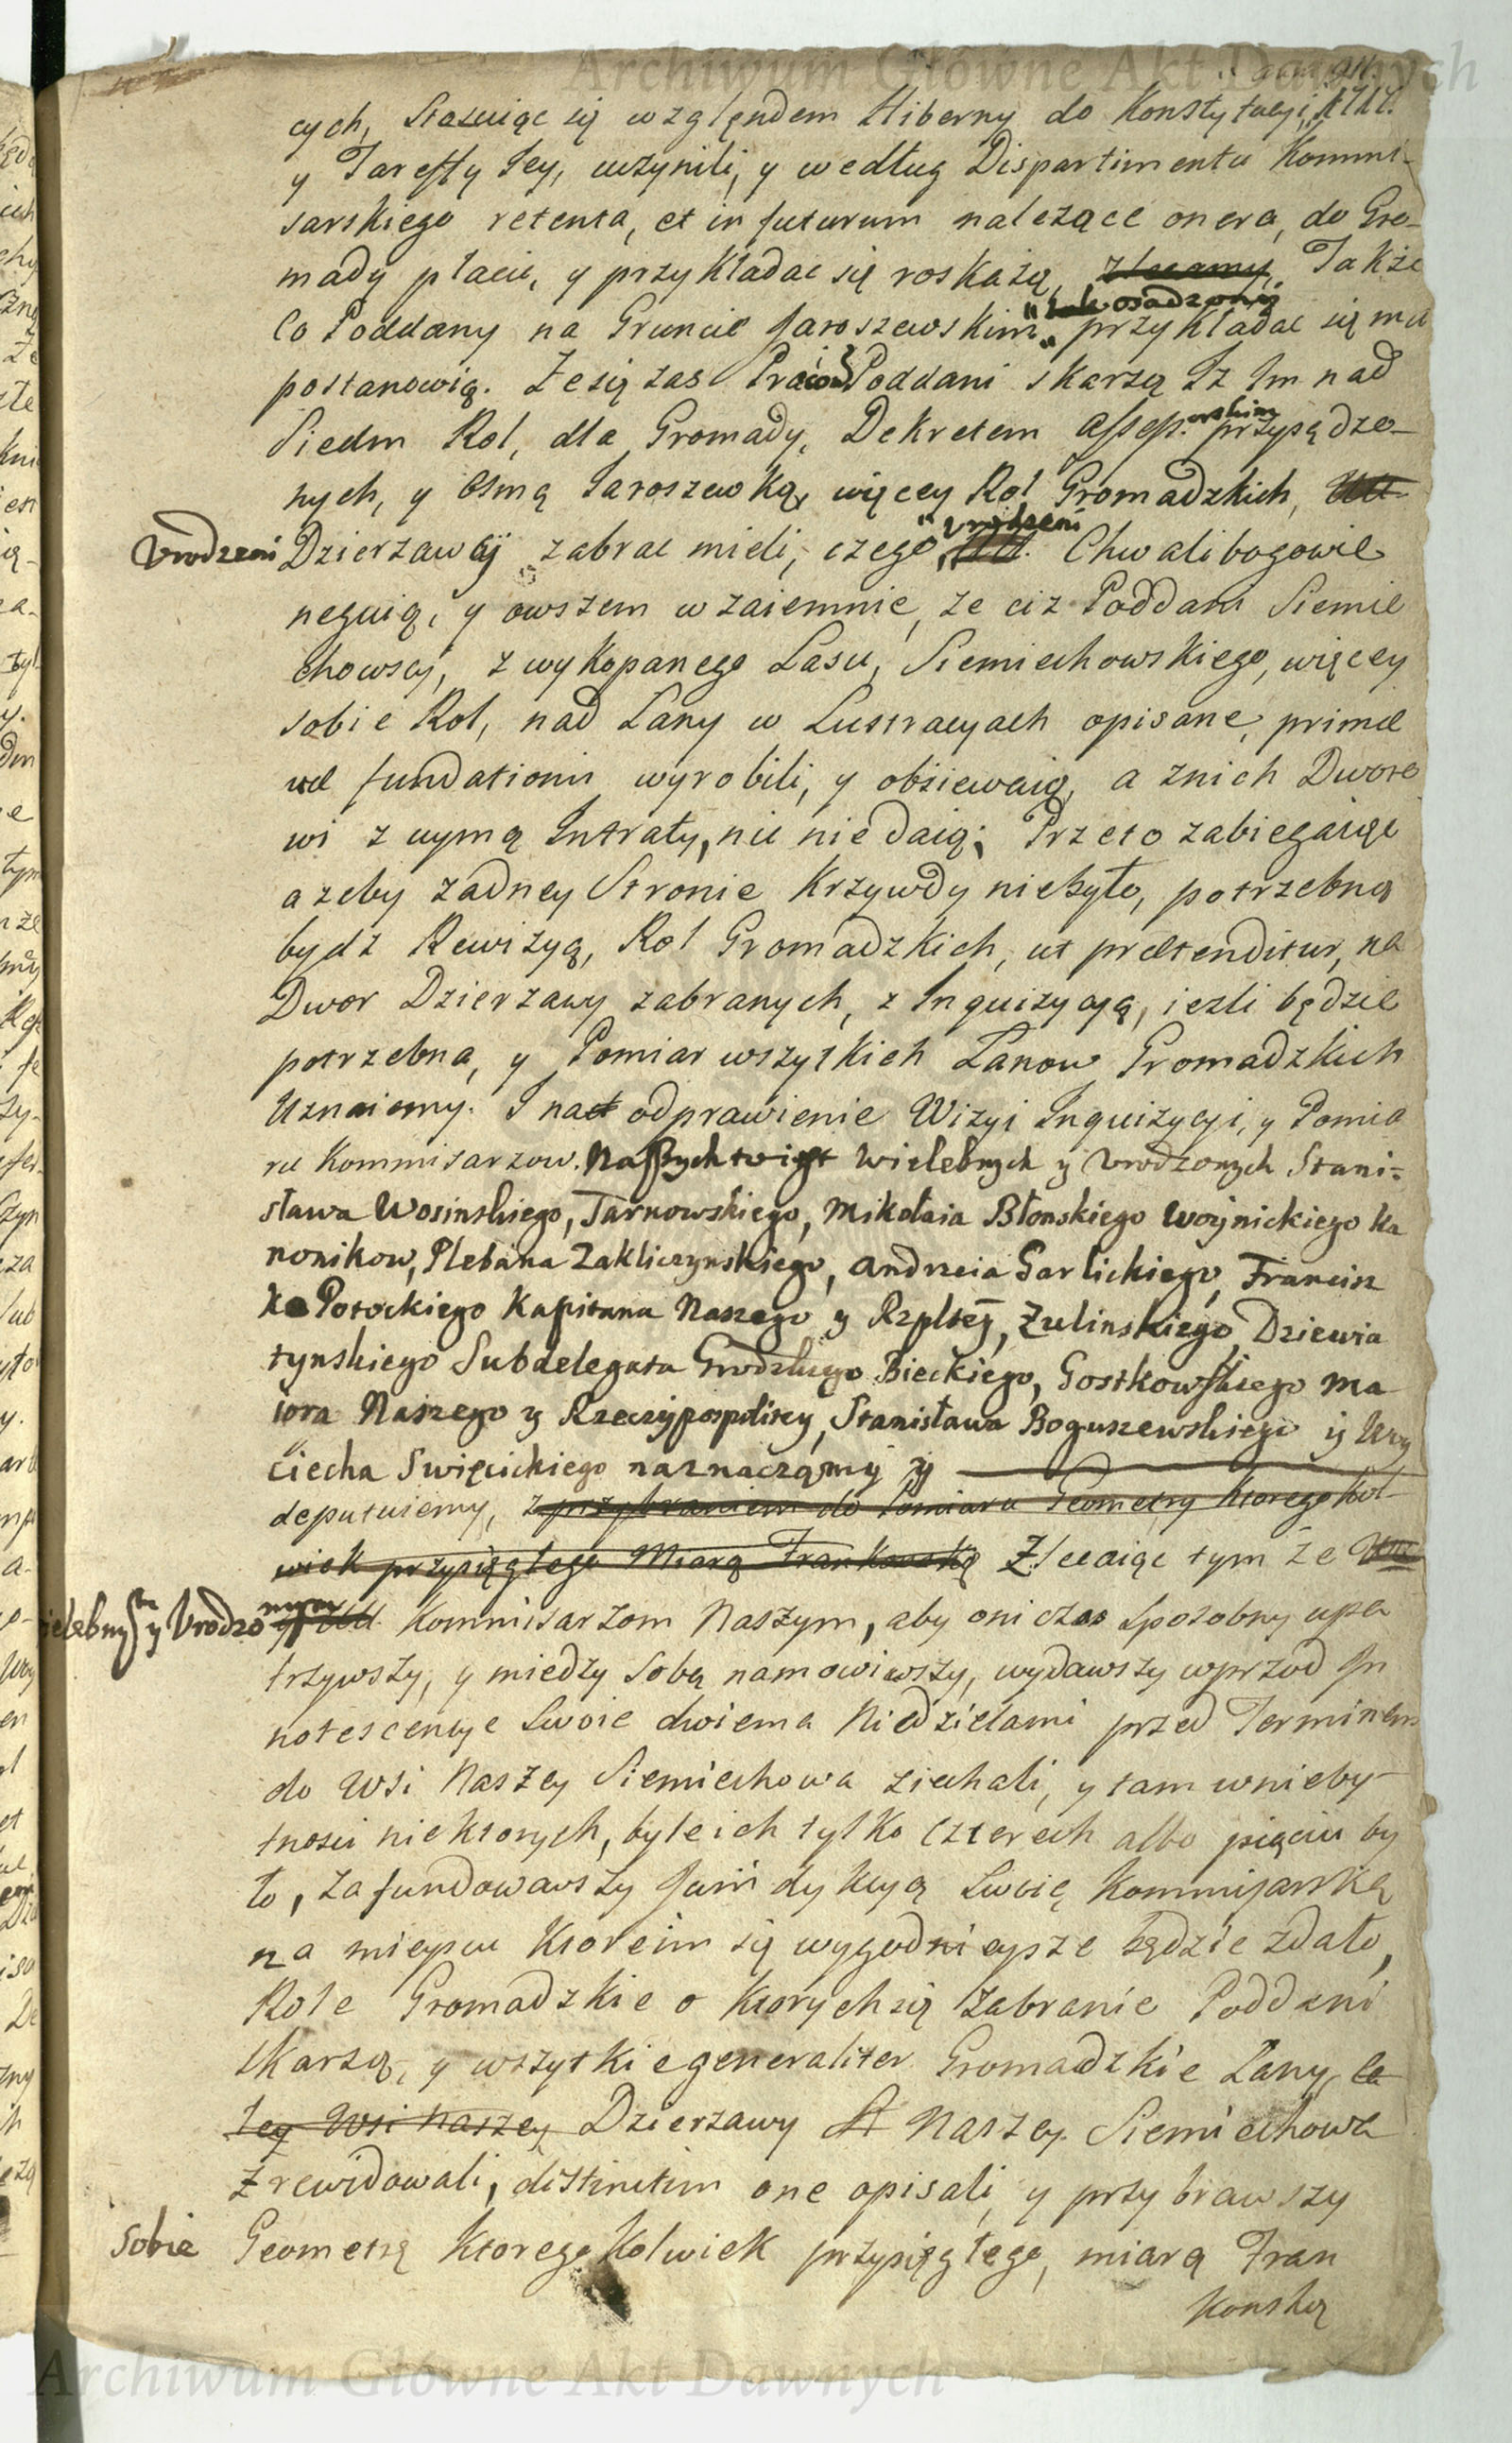 Archiwum Główne Akt Dawnych
cych, Stosuiąc się względem Hiberny do Konstytucyi, 1717.
y Tareffy Jey, uczynili, y według Dispartimentu Kommi-
sarskiego retenta, et in futurum należące onera, do Gro-
mady płacic, y przykładac się roskażą, zlecamy, Także
Co Poddany na Gruncie Jaroszewskim osadzony przykładac się ma
postanowią. Ze się zas Poddani skarżą Iz Im nad
Siedm Rol, dla Gromady, Dekretem Assess:orskim przysądzo-
nych, y Osmą Jaroszewską, więcey Rol Gromadzkich,
Urodzeni Dzierzawcy zabrac mieli, czego Urodzeni Chwalibogowie
neguią, y owszem wzaiemnie, ze ciz Poddani Siemie
chowscy, z wykopanego Lasu, Siemiechowskiego, więcey
sobie Rol, nad Łany w Lustracyach opisane, primæ
væ fundationis wyrobili, y obsiewaią, a znich Dworo
wi z uymą Intraty, nic nie daią; Przeto zabiegaiąc
azeby zadney Stronie Krzywdy niebyło, potrzebną
bydz Rewizyą, Rol Gromadzkich, ut prætenditur, na
Dwor Dzierzawy zabranych, z Inquizycyą, iezli będzie
potrzebna, y Pomiar wszystkich Łanow Gromadzkich
Uznaiemy. I na odprawienie Wizyi Inquizycyi, y Pomia
ru Kommisarzow. Naszych Wielebnych y Urodzonych Stani-
sława Wosinskiego, Tarnowskiego, Mikołaia Błonskiego Woynickiego Ka
nonikow, Plebana Zakliczynskiego, Andrzeia Garlickiego, Francisz
ka Potockiego Kapitana Naszego y Rzpltey, Zulinskiego, Dziewia
tynskiego Subdelegata Grodzkiego Bieckiego, Gostkowskiego Ma
iora Naszego y Rzeczypospolitey, Stanisława Boguszewskiego y Woy
ciecha Swięcickiego naznaczamy y
deputuiemy, z przybraniem do Pomiaru Geometry ktoregokol-
wiek przysięgłego Miarą Frankonską Zlecaiąc tym że
Wielebnym y Urodzonym Kommisarzom Naszym, aby oni czas sposobny upa
trzywszy, y miedzy sobą namowiwszy, wydawszy wprzod In
notescencye Swoie dwiema Niedzielami przed Terminem
do Wsi Naszey Siemiechowa ziechali, y tam wnieby-
tnosci niektorych, byle ich tylko czterech albo pięciu by
ło, zafundowawszy Jurisdykcyą Swoię Kommissarską
na mieyscu ktore im się wygodnieysze będzie zdało,
Role Gromadzkie o ktorych się zabranie Poddani
skarżą, y wszytkie generaliter Gromadzkie Łany, ca
łey Wsi Naszey Dzierzawy Naszey Siemiechowa
zrewidowali, distinctim one opisali, y przybrawszy
sobie Geometrę ktoregokolwiek przysięgłego, miarą Fran
konską
Archiwum Główne Akt Dawnych